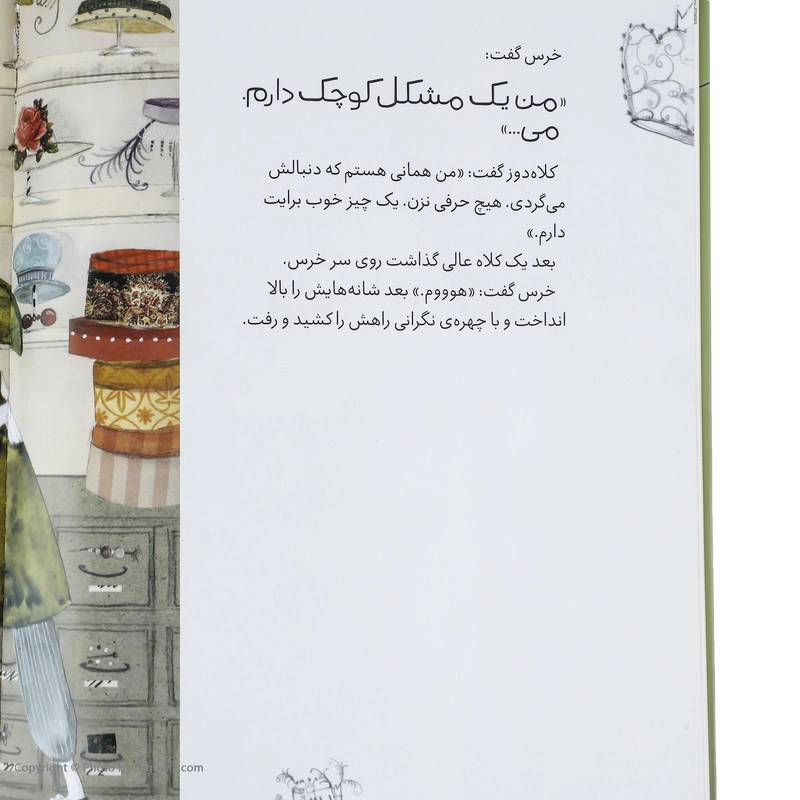 خرس گفت:
«من یک مشکل کوچک دارم.
می...»
کلاه‌دوز گفت: «من همانی هستم که دنبالش
می‌گردی. هیچ حرفی نزن. یک چیز خوب برایت
دارم.»
بعد یک کلاه عالی گذاشت روی سر خرس.
خرس گفت: «هوووم.» بعد شانه‌هایش را بالا
انداخت و با چهره‌ی نگرانی راهش را کشید و رفت.
Copyright © Photo
.com